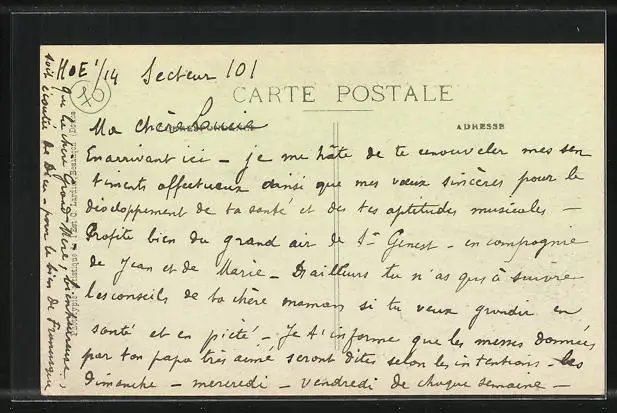 HOE 1/14 Secteur 101
70
CARTE POSTALE
CORRESPONDANCE
ADRESSE
Ma chère Louise
En arrivant ici – je me hâte de te renouveler mes sen
timents affectueux ainsi que mes vœux sincères pour le
développement de ta santé et des tes aptitudes musicales –
Profite bien du grand air de St Genest – en compagnie
de Jean et de Marie – D'ailleurs tu n'as qu'à suivre
les conseils de ta chère maman si tu veux grandir en
santé et en piété – Je t'informe que les messes données
par ton papa très aimé seront dites selon les intentions – les
dimanche – mercredi – vendredi de chaque semaine –
que ta chère Grand-Mère, bienheureuse,
soit écoutée de Dieu – pour le bien de